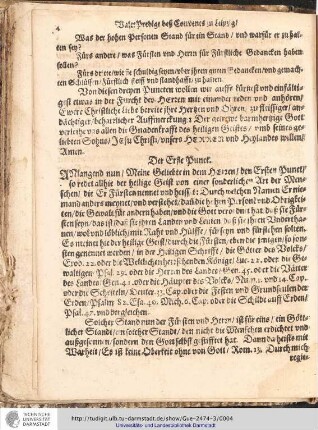 4
Vater Predige deß Convences zu Leipzig/
Was der hohen Personen Stand für ein Stand / und wafür er zu hal-
ten sey?
Fürs ander / was Fürsten und Herrn für Fürstliche Gedancken haben
sollen?
Fürs dritte / wie sie schuldig seyn / über ihren guten Gedancken / und gemach-
ten Schlüssen / Fürstlich steiff und standhafft zu halten.
Von diesen dreyen Puncten wollen wir auffs kürtzst und einfältig-
gest etwas in der Furcht des Herren mit einander reden und anhören /
Ewere Christliche Liebe bereite ihre Herzen und Ohren zu fleissiger / an-
dächtiger / beharrlicher Auffmerckung: Der getrewe barmhertzige Gott
verleihe uns allen die Gnadenkrafft des heiligen Geistes / umb seines ge-
liebten Sohns / Jesu Christi / unsers HERREN und Heylandes willen /
Amen.
Der Erste Punct.
ANlangend nun / Meine Geliebte in dem Herren / den Ersten Punct /
so redet allhie der heilige Geist von einer sonderlichen Art der Men-
schen / die Er Fürsten nennet und heist: Durch welchen Namen Er nie-
mand anders meynet / und verstehet / dañ die hohen Personen und Obrigkei-
ten / die Gewalt für andern haben /
sten seyn / das ist / daß sie ihren Landen und Leuten
nen / wol und löblich mit Raht und Hülffe / fürstehen sollen.
Es meinet hie der heilige Geist / durch die Fürsten / eben die jenigen / so son-
sten genennet werden / in der Heiligen Schrifft / die Götter des Volcks /
Exod. 22. oder die Weltlichen herrschenden Könige / Luc. 22. oder die Ge-
waltigen / Psal. 29. oder die Herren des Landes / Gen. 45. oder die Väter
des Landes / Gen. 41. oder die Häupter des Volcks / Num. 14. Cap.
oder die Scheiteln /
Erden / Psalm. 82. Esa. 40. Mich. 6. Cap. oder die Schilde auff Erden /
Psal. 47. und dergleichen.
Solcher Stand nun der Fürsten und Herrn / ist fürs eine / ein Gött-
licher Stand / ein solcher Stand / den nicht die Menschen erdichtet und
außgesonnen / sondern den Gott selbst gestifftet hat. Dann da heist mit
Warheit / Es ist keine Oberkeit ohne von Gott / Rom. 13. Durch mich
regie-
TECHNISCHE
UNIVERSITÄT
DARMSTADT
http://tudigit.ulb.tu-darmstadt.de/show/Gue-2474-3/0004
Universitäts- und Landesbibliothek Darmstadt